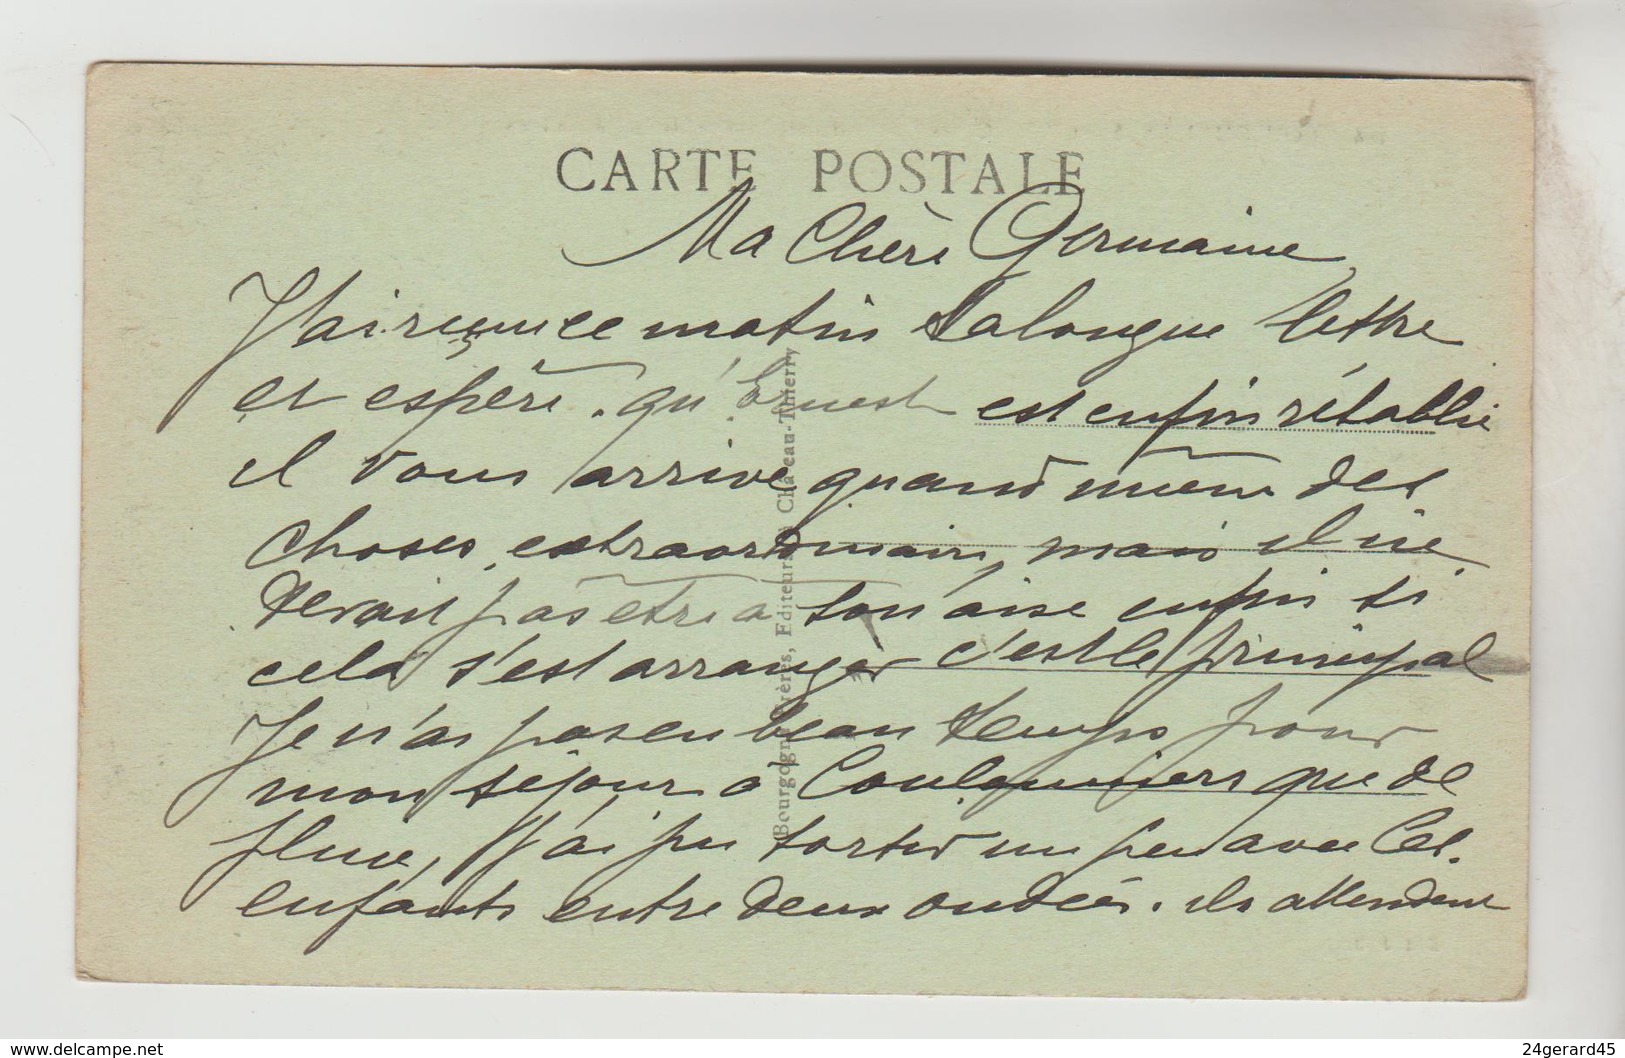 CARTE POSTALE
Ma Chère Germaine,
J'ai reçu ce matin ta longue lettre
et espère qu'Ernest est enfin rétabli
il vous arrive quand même des
choses extraordinaires, mais il ne
devait pas être à son aise enfin si
cela s'est arranger c'est le principal
Je n'ai pas eu beau temps pour
mon séjour à que de
pluie, j'ai pu sortir un peu avec les
enfants entre deux ondées. ils attendent
Bourgogne Frères, Editeurs, Château-Thierry
www.delcampe.net
24gerard45